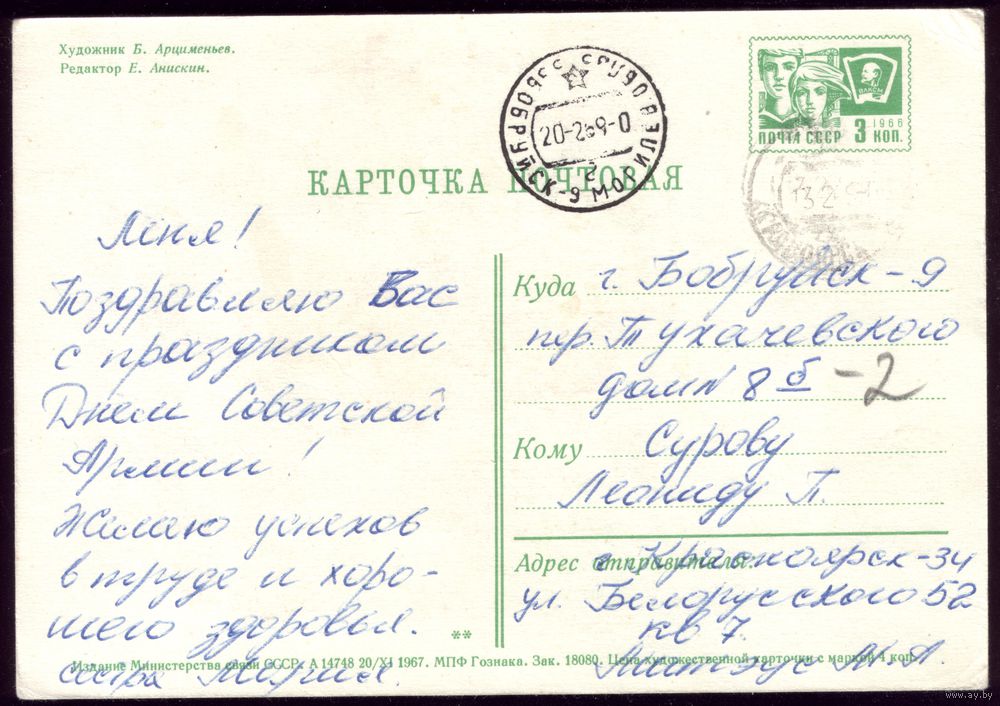 Художник Б. Арцименьев.
Редактор Е. Анискин.
ВЛКСМ
1966
ПОЧТА СССР 3 КОП.
БОБРУЙСК-9 МОГИЛЕВ
20-269-0
г
КАРТОЧКА ПОЧТОВАЯ
Лёня!
Поздравляю Вас
с праздником
Днем Советской
Армии!
Желаю успехов
в труде и хоро-
шего здоровья.
сестра Мария.
Куда г. Бобруйск-9
пер. Тухачевского
дом N 8 б -2
Кому Сурову
Леониду П.
Адрес отправителя: г Красноярск-34
ул. Белорусского 52
кв 7.
**
Издание Министерства связи СССР. А 14748 20/XI 1967. МПФ Гознака. Зак. 18080. Цена художественной карточки с маркой 4 коп.
www.ay.by